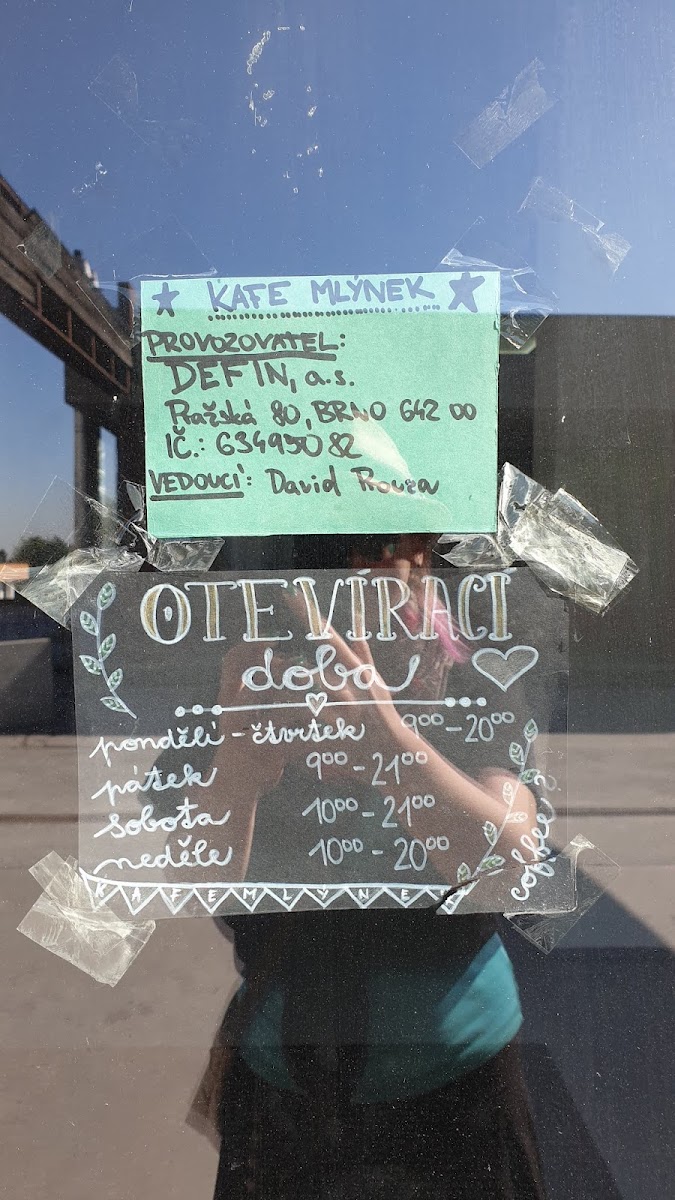 KAFE MLÝNEK
PROVOZOVATEL:
DEFIN, a.s.
Pražská 80, BRNO 642 00
IČ.: 63495082
VEDOUCÍ: David Rouza
OTEVÍRACÍ
doba
pondělí - čtvrtek 9⁰⁰ - 20⁰⁰
pátek 9⁰⁰ - 21⁰⁰
sobota 10⁰⁰ - 21⁰⁰
neděle 10⁰⁰ - 20⁰⁰
KAFE MLÝNEK
coffee